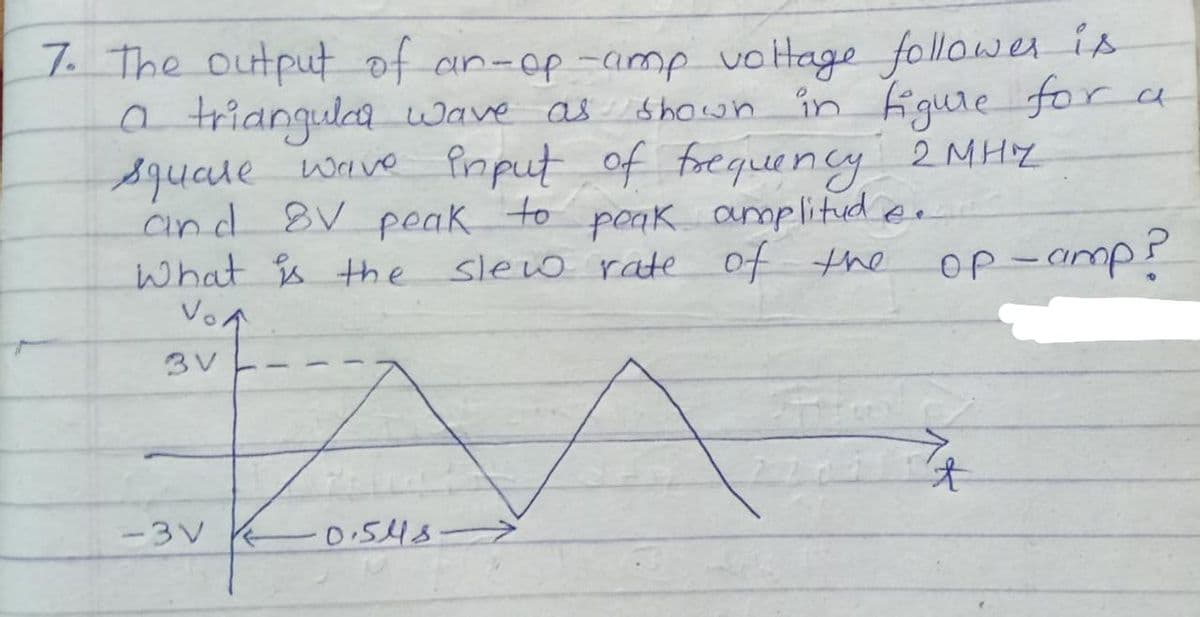 7. The output of an-op-amp voltage follower is
a triangular wave as shown in figure for a
square wave input of frequency 2 MHZ
and 8V peak to peak amplitude.
What is the slew rate of the op-amp?
Vo
3V
t
-3V
0.5μs